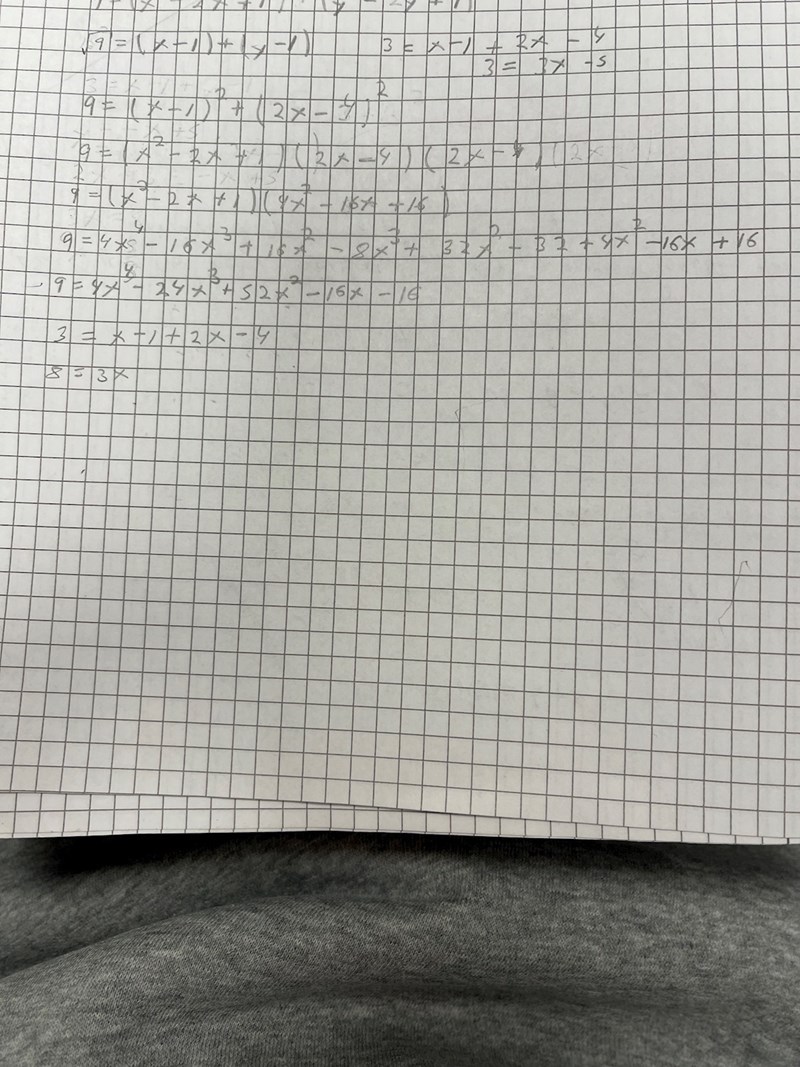 √9 = (x-1)+(y-1) 3 = x-1 + 2x - 4
3 = 3x -5
9 = (x-1)² + (2x-4)²
9 = (x² - 2x + 1) (2x-4) (2x-4) (2x
9 = (x² - 2x + 1)(4x² - 16x + 16)
9 = 4x⁴ - 16x³ + 16x² - 8x³ + 32x² - 32 + 4x² - 16x + 16
9 = 4x⁴ - 24x³ + 52x² - 16x - 16
3 = x-1 + 2x - 4
8 = 3x